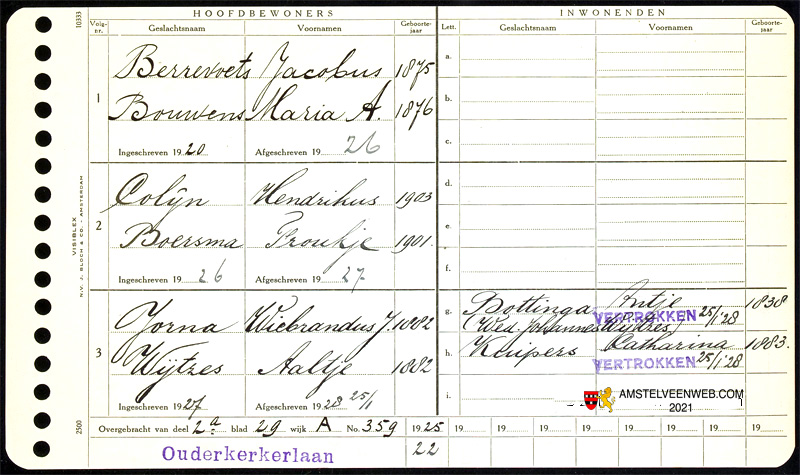 HOOFDBEWONERS
INWONENDEN
10333
Volg-nr.
Geslachtsnaam
Voornamen
Geboorte-jaar
Lett.
Geslachtsnaam
Voornamen
Geboorte-jaar
1
Berrevoets Jacobus 1875
Bouwens Maria A. 1876
Ingeschreven 1920 Afgeschreven 19 26
2
Colijn Hendrikus 1903
Boersma Froukje 1901.
Ingeschreven 19 26 Afgeschreven 19 27
3
Jorna Wiebrandus J. 1882
Wijtzes Aaltje 1882
Ingeschreven 1927 Afgeschreven 1928 25/1
a.
b.
c.
d.
e.
f.
g. Bottinga Antje 1838
(Wed. Johannes Wijtzes)
VERTROKKEN 25/1'28
h. Kuipers Catharina 1883.
VERTROKKEN 25/1'28
i.
AMSTELVEENWEB.COM
2021
VISIBLEX
N.V. J. BLOCH & CO. - AMSTERDAM
2500
Overgebracht van deel 2a blad 29 wijk A No. 359 1925 19 19 19 19 19 19 19 19
Ouderkerkerlaan 22